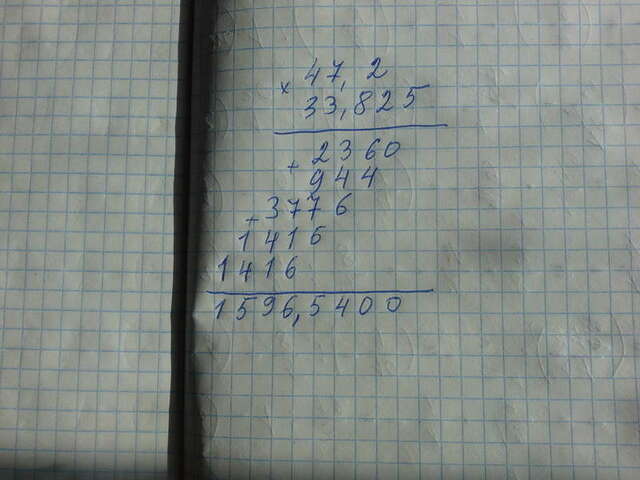 × 47,2
33,825
+ 2360
944
+ 3776
1416
1416
1596,5400